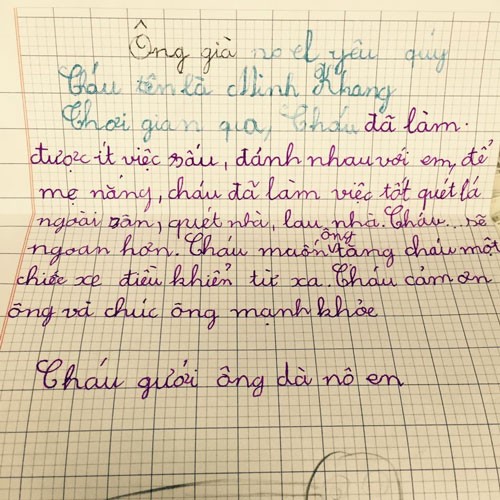 Ông già no el yêu quý
Cháu tên là Minh Khang
Thời gian qua, Cháu đã làm.
được ít việc sấu, đánh nhau với em, để
mẹ nắng, cháu đã làm việc tốt quét lá
ngoài sân, quét nhà, lau nhà. Cháu... sẽ
ngoan hơn. Cháu muốn ông tặng cháu một
chiếc xe điều khiển từ xa. Cháu cảm ơn
ông và chúc ông mạnh khỏe
Cháu gưới ông dà nô en